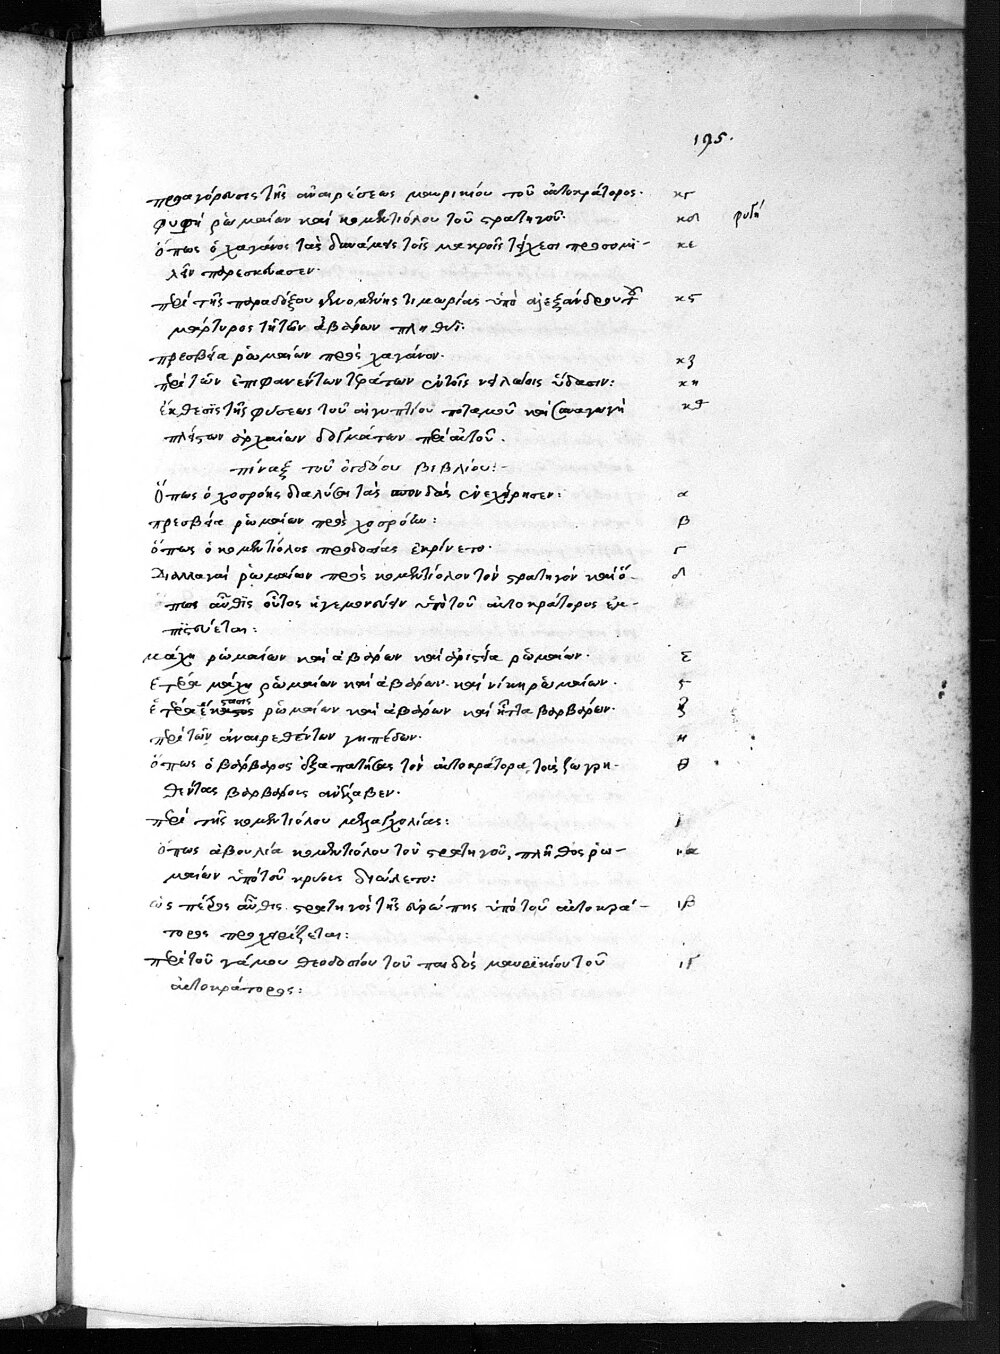 195.
προαγόρευσις τῆς ἀναιρέσεως μαυρικίου τοῦ αὐτοκράτορος· κγ
φυφὴ ῥωμαίων καὶ κομεντιόλου τοῦ στρατηγοῦ· κδ φυγή
ὅπως ὁ χαγάνος τὰς δυνάμεις τοῖς μακροῖς τείχεσι προσομι- κε
λεῖν παρεσκεύασεν·
περὶ τῆς παραδόξου γενομένης τιμωρίας ὑπὸ ἀλεξάνδρου τοῦ κς
μάρτυρος τῆ τῶν ἀβάρων πληθύϊ:
πρεσβεία ῥωμαίων πρὸς χαγάνον· κζ
περὶ τῶν ἐπιφανέντων τεράτων ἐν τοῖς νειλαίοις ὕδασιν: κη
ἔκθεσις τῆς φύσεως τοῦ αἰγυπτίου ποταμοῦ καὶ συναγωγὴ κθ
πλείστων ἀρχαίων δογμάτων περὶ αὐτοῦ.
πίναξ τοῦ ὀγδόου βιβλίου:-
Ὅπως ὁ χοσρόης διαλύσειν τὰς σπονδὰς ἐνεχείρησεν: α
πρεσβεία ῥωμαίων πρὸς χοσρόην: β
ὅπως ὁ κομεντιόλος προδοσίας ἐκρίνετο· γ
Διαλλαγαὶ ῥωμαίων πρὸς κομεντιόλον τὸν στρατηγὸν καὶ ὅ- δ
πως αὖθις οὗτος ἡγεμονεύειν ὑπὸ τοῦ αὐτοκράτορος ἐμ-
πιστεύεται:
μάχη ῥωμαίων καὶ ἀβάρων καὶ ἀριστεία ῥωμαίων· ε
ἑτέρα μάχη ῥωμαίων καὶ ἀβάρων· καὶ νίκη ῥωμαίων· ς
ἑτέρα ἔκστασις ῥωμαίων καὶ ἀβάρων καὶ ἧττα βαρβάρων· ζ
περὶ τῶν ἀναιρεθέντων γηπέδων· η
ὅπως ὁ βάρβαρος ἐξαπατήσας τὸν αὐτοκράτορα, τοὺς ζωγρη- θ
θέντας βαρβάρους ἀνέλαβεν·
περὶ τῆς κομεντιόλου μελαγχολίας: ι
ὅπως ἀβουλία κομεντιόλου τοῦ στρατηγοῦ, πλῆθος ῥω- ια
μαίων ὑπὸ τοῦ κρύους διώλετο:
ὡς πέτρος αὖθις στρατηγὸς τῆς εὐρώπης ὑπὸ τοῦ αὐτοκρά- ιβ
τορος προχειρίζεται:
περὶ τοῦ γάμου θεοδοσίου τοῦ παιδὸς μαυρικίου τοῦ ιγ
αὐτοκράτορος: